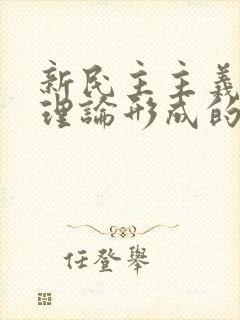 新民主主義
理論形成的
任登舉